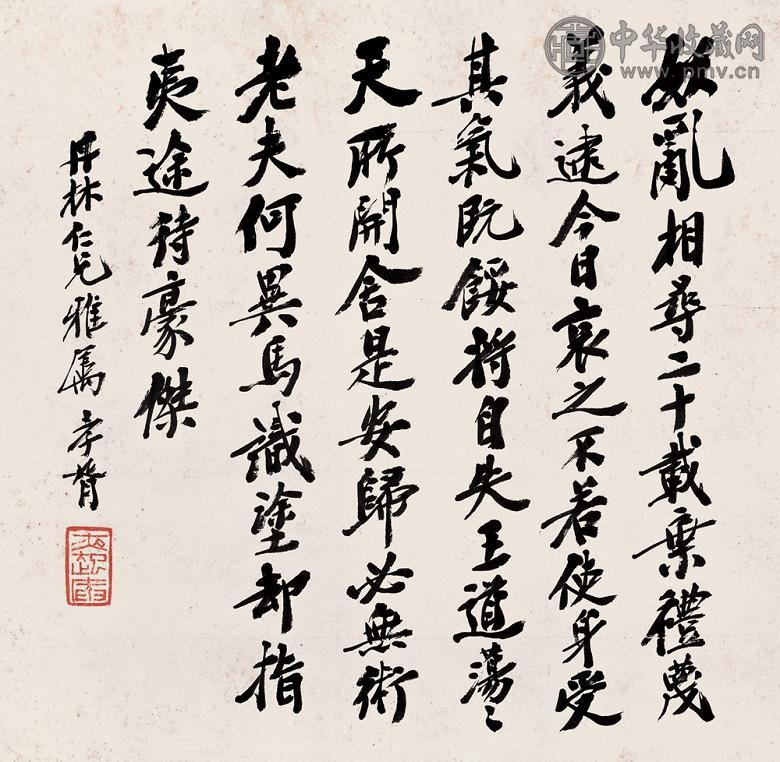 妖亂相尋二十載棄禮蔑
義逮今日哀之不若使身受
其氣既餒將自失王道蕩〻
天所開舍是安歸必無術
老夫何異馬識塗却指
夷途待豪傑
丹林仁兄雅属 孝胥
中华收藏网
www.pmv.cn